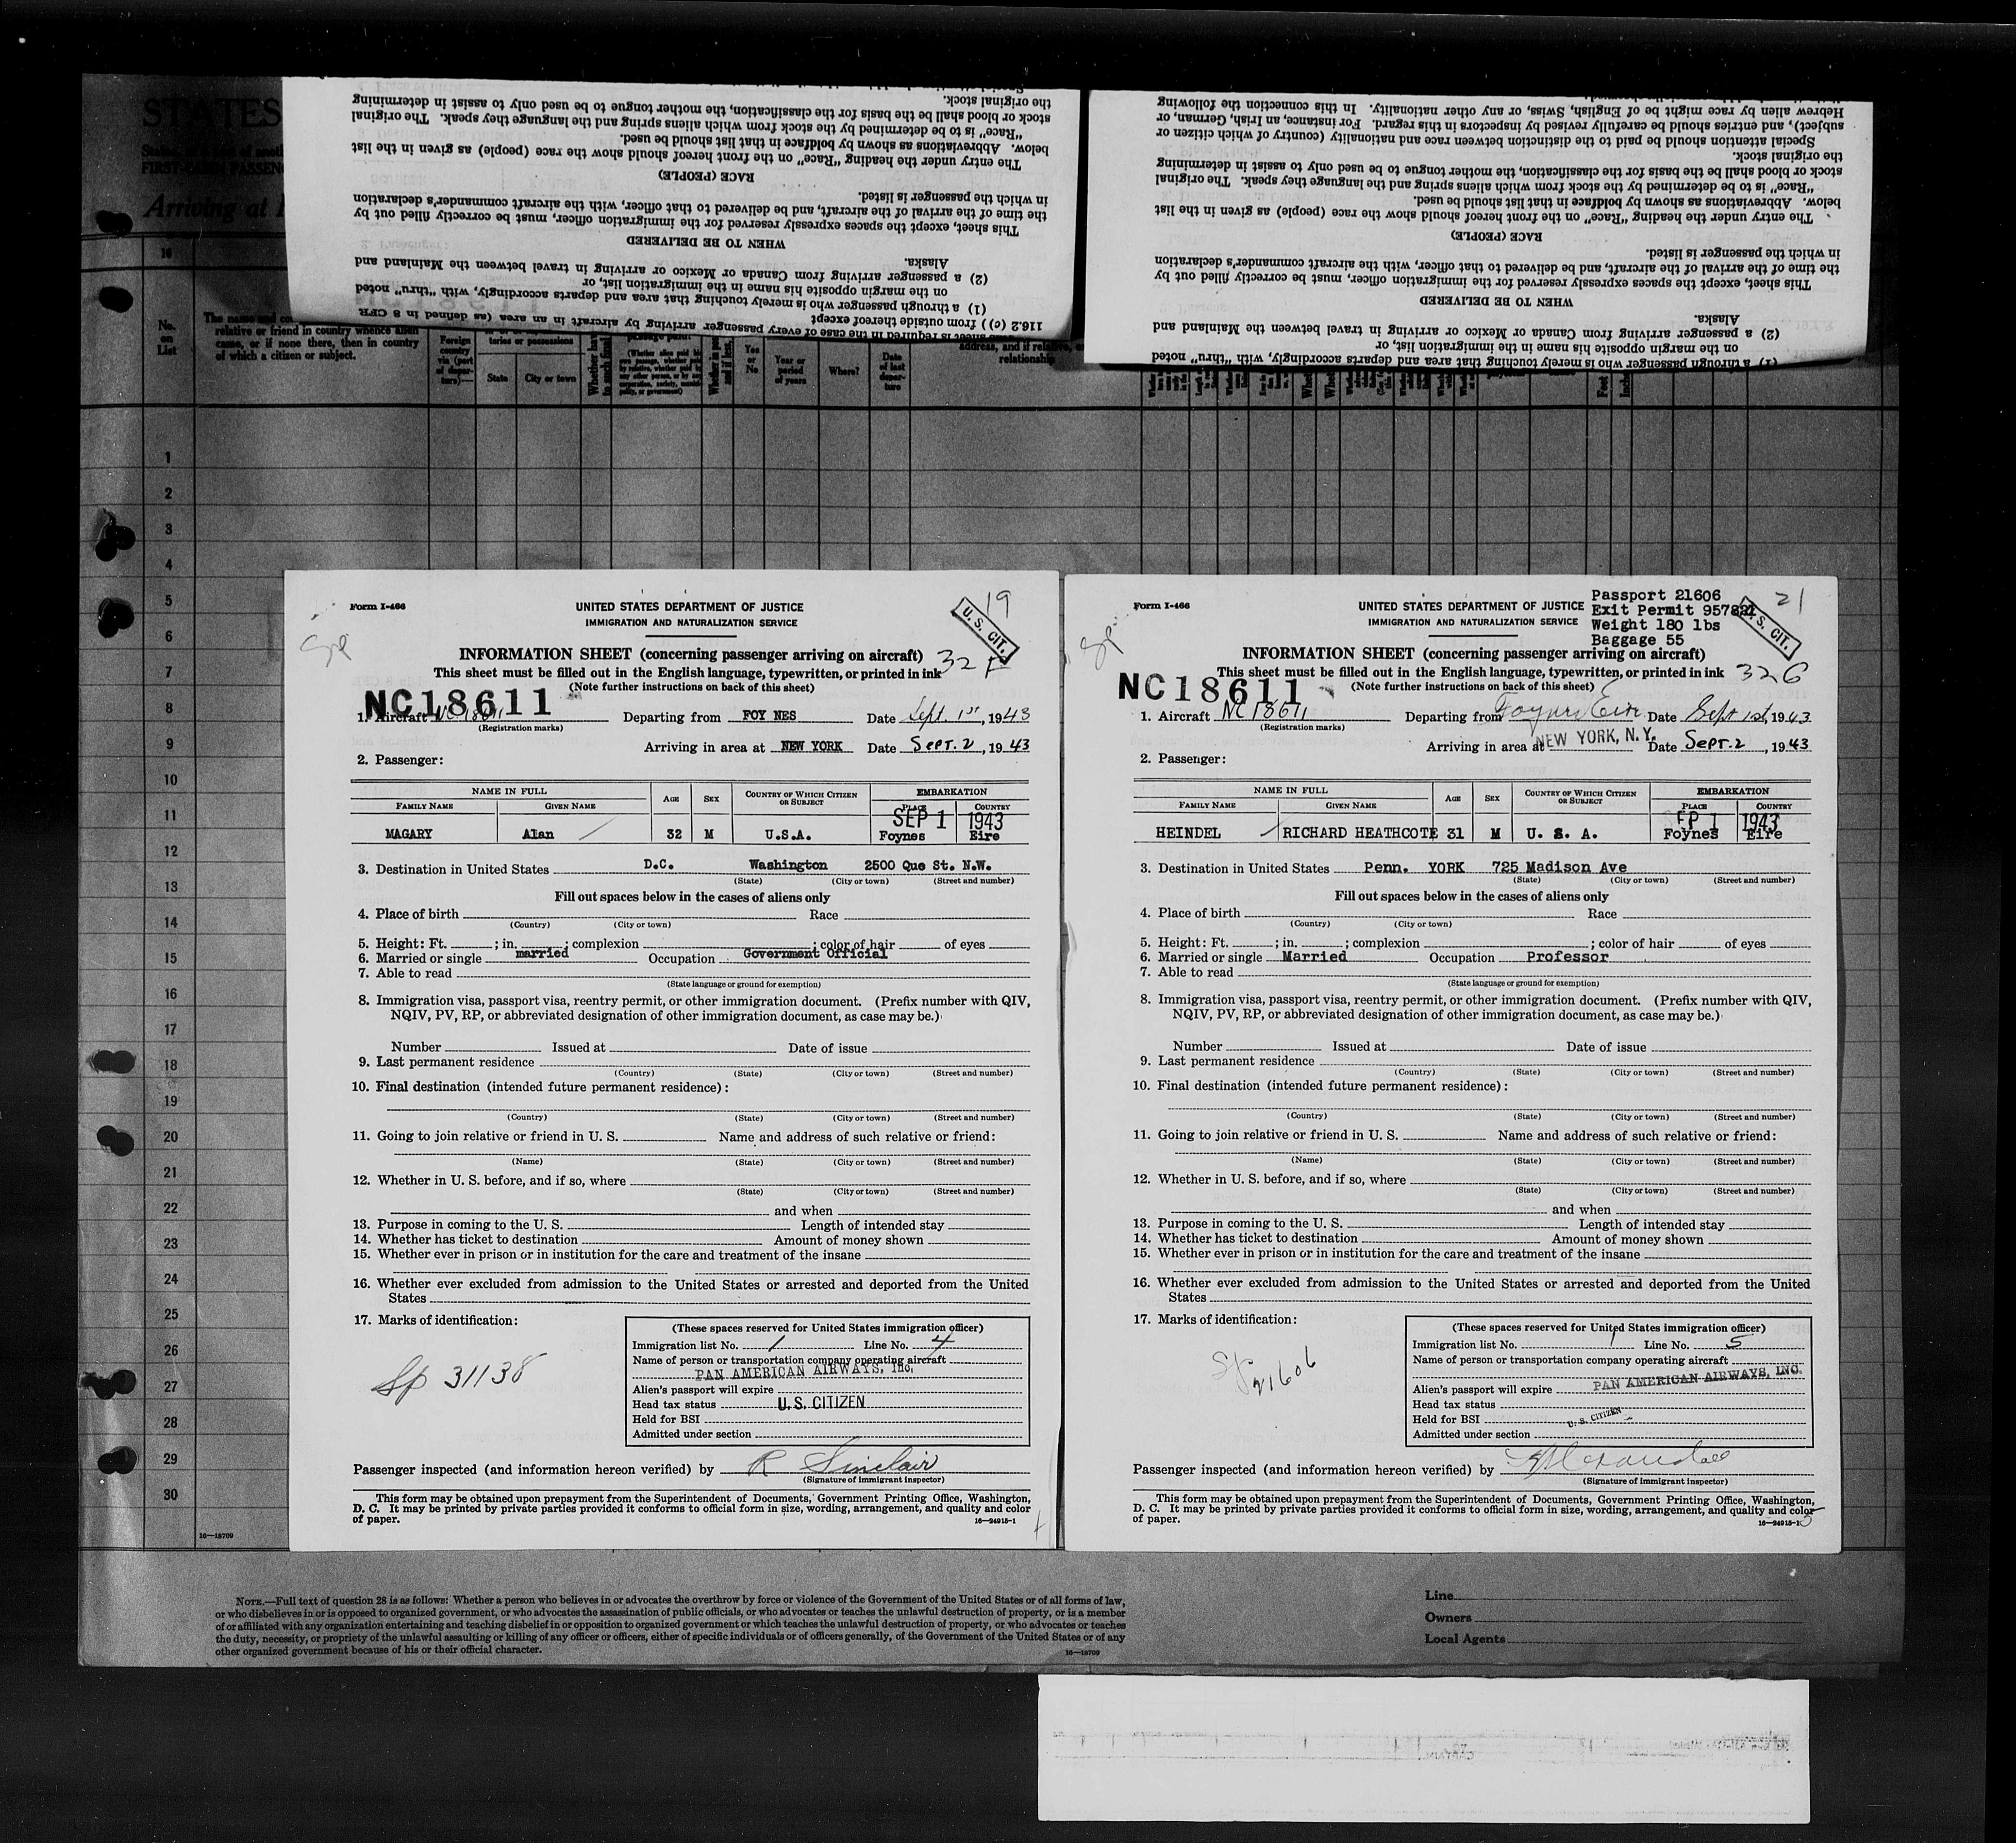 STATES
FIRST-
PASSENG
Arriving at
16
No.
on
List
relative or friend in country whence alien
came, or if none there, then in country
of which a citizen or subject.
Foreign
country
via (port
of depar-
ture)—
tories or possessions
State
City or town
Yes
or
No
Year or
period
of years
Where?
Date
of last
depar-
ture
address, and if relative,
relationship
the original stock.
stock or blood shall be the basis for the classification, the mother tongue to be used only to assist in determining
"Race" is to be determined by the stock from which aliens spring and the language they speak. The original
below. Abbreviations as shown by boldface in that list should be used.
The entry under the heading "Race" on the front hereof should show the race (people) as given in the list
RACE (PEOPLE)
in which the passenger is listed.
the time of the arrival of the aircraft, and be delivered to that officer, with the aircraft commander's declaration
This sheet, except the spaces expressly reserved for the immigration officer, must be correctly filled out by
WHEN TO BE DELIVERED
Alaska.
(2) a passenger arriving from Canada or Mexico or arriving in travel between the Mainland and
on the margin opposite his name in the immigration list, or
(1) a through passenger who is merely touching that area and departs accordingly, with "thru" noted
116.2 (c)) from outside thereof except
sheet is required in the case of every passenger arriving by aircraft in an area (as defined in 8 CFR
Hebrew alien by race might be of English, Swiss, or any other nationality. In this connection the following
subject), and entries should be carefully revised by inspectors in this regard. For instance, an Irish, German, or
Special attention should be paid to the distinction between race and nationality (country of which citizen or
the original stock.
stock or blood shall be the basis for the classification, the mother tongue to be used only to assist in determining
"Race" is to be determined by the stock from which aliens spring and the language they speak. The original
below. Abbreviations as shown by boldface in that list should be used.
The entry under the heading "Race" on the front hereof should show the race (people) as given in the list
RACE (PEOPLE)
in which the passenger is listed.
the time of the arrival of the aircraft, and be delivered to that officer, with the aircraft commander's declaration
This sheet, except the spaces expressly reserved for the immigration officer, must be correctly filled out by
WHEN TO BE DELIVERED
Alaska.
(2) a passenger arriving from Canada or Mexico or arriving in travel between the Mainland and
on the margin opposite his name in the immigration list, or
(1) a through passenger who is merely touching that area and departs accordingly, with "thru" noted
1
2
3
4
5
6
7
8
9
10
11
12
13
14
15
16
17
18
19
20
21
22
23
24
25
26
27
28
29
30
16—18709
Form I-466
UNITED STATES DEPARTMENT OF JUSTICE
IMMIGRATION AND NATURALIZATION SERVICE
19
U. S. CIT.
Sp
INFORMATION SHEET (concerning passenger arriving on aircraft)
32 F
This sheet must be filled out in the English language, typewritten, or printed in ink
(Note further instructions on back of this sheet)
NC18611
1. Aircraft NC 18611 Departing from FOY NES Date Sept. 1st, 1943
(Registration marks)
Arriving in area at NEW YORK Date SEPT. 2, 1943
2. Passenger:
NAME IN FULL
FAMILY NAME GIVEN NAME AGE SEX COUNTRY OF WHICH CITIZEN OR SUBJECT EMBARKATION
PLACE COUNTRY
SEP 1 1943
MAGARY Alan 32 M U.S.A. Foynes Eire
3. Destination in United States D.C. Washington 2500 Que St. N.W.
(State) (City or town) (Street and number)
Fill out spaces below in the cases of aliens only
4. Place of birth Race
(Country) (City or town)
5. Height: Ft. ; in. ; complexion ; color of hair of eyes
6. Married or single married Occupation Government Official
7. Able to read
(State language or ground for exemption)
8. Immigration visa, passport visa, reentry permit, or other immigration document. (Prefix number with QIV,
NQIV, PV, RP, or abbreviated designation of other immigration document, as case may be.)
Number Issued at Date of issue
9. Last permanent residence
(Country) (State) (City or town) (Street and number)
10. Final destination (intended future permanent residence):
(Country) (State) (City or town) (Street and number)
11. Going to join relative or friend in U. S. Name and address of such relative or friend:
(Name) (State) (City or town) (Street and number)
12. Whether in U. S. before, and if so, where
(State) (City or town) (Street and number)
and when
13. Purpose in coming to the U. S. Length of intended stay
14. Whether has ticket to destination Amount of money shown
15. Whether ever in prison or in institution for the care and treatment of the insane
16. Whether ever excluded from admission to the United States or arrested and deported from the United
States
17. Marks of identification:
Sp 31138
(These spaces reserved for United States immigration officer)
Immigration list No. 1 Line No. 4
Name of person or transportation company operating aircraft
PAN AMERICAN AIRWAYS, Inc.
Alien's passport will expire
Head tax status U.S. CITIZEN
Held for BSI
Admitted under section
Passenger inspected (and information hereon verified) by R Sinclair
(Signature of immigrant inspector)
This form may be obtained upon prepayment from the Superintendent of Documents, Government Printing Office, Washington,
D. C. It may be printed by private parties provided it conforms to official form in size, wording, arrangement, and quality and color
of paper.
16—24915-1
Form I-466
UNITED STATES DEPARTMENT OF JUSTICE
IMMIGRATION AND NATURALIZATION SERVICE
Passport 21606
Exit Permit 957821
Weight 180 lbs
Baggage 55
21
U. S. CIT.
Sp
INFORMATION SHEET (concerning passenger arriving on aircraft)
This sheet must be filled out in the English language, typewritten, or printed in ink
(Note further instructions on back of this sheet)
NC18611
1. Aircraft NC18611 Departing from Foynes Eire Date Sept 1st, 1943
(Registration marks)
Arriving in area at NEW YORK, N.Y. Date SEPT. 2, 1943
2. Passenger:
NAME IN FULL
FAMILY NAME GIVEN NAME AGE SEX COUNTRY OF WHICH CITIZEN OR SUBJECT EMBARKATION
PLACE COUNTRY
EP 1 1943
HEINDEL RICHARD HEATHCOTE 31 M U. S. A. Foynes Eire
3. Destination in United States Penn. YORK 725 Madison Ave
(State) (City or town) (Street and number)
Fill out spaces below in the cases of aliens only
4. Place of birth Race
(Country) (City or town)
5. Height: Ft. ; in. ; complexion ; color of hair of eyes
6. Married or single Married Occupation Professor
7. Able to read
(State language or ground for exemption)
8. Immigration visa, passport visa, reentry permit, or other immigration document. (Prefix number with QIV,
NQIV, PV, RP, or abbreviated designation of other immigration document, as case may be.)
Number Issued at Date of issue
9. Last permanent residence
(Country) (State) (City or town) (Street and number)
10. Final destination (intended future permanent residence):
(Country) (State) (City or town) (Street and number)
11. Going to join relative or friend in U. S. Name and address of such relative or friend:
(Name) (State) (City or town) (Street and number)
12. Whether in U. S. before, and if so, where
(State) (City or town) (Street and number)
and when
13. Purpose in coming to the U. S. Length of intended stay
14. Whether has ticket to destination Amount of money shown
15. Whether ever in prison or in institution for the care and treatment of the insane
16. Whether ever excluded from admission to the United States or arrested and deported from the United
States
17. Marks of identification:
Sp 21606
(These spaces reserved for United States immigration officer)
Immigration list No. 1 Line No. 5
Name of person or transportation company operating aircraft
PAN AMERICAN AIRWAYS, INC.
Alien's passport will expire
Head tax status
Held for BSI U. S. CITIZEN
Admitted under section
Passenger inspected (and information hereon verified) by
(Signature of immigrant inspector)
This form may be obtained upon prepayment from the Superintendent of Documents, Government Printing Office, Washington,
D. C. It may be printed by private parties provided it conforms to official form in size, wording, arrangement, and quality and color
of paper.
16—24915-1
NOTE.—Full text of question 28 is as follows: Whether a person who believes in or advocates the overthrow by force or violence of the Government of the United States or of all forms of law,
or who disbelieves in or is opposed to organized government, or who advocates the assassination of public officials, or who advocates or teaches the unlawful destruction of property, or is a member
of or affiliated with any organization entertaining and teaching disbelief in or opposition to organized government or which teaches the unlawful destruction of property, or who advocates or teaches
the duty, necessity, or propriety of the unlawful assaulting or killing of any officer or officers, either of specific individuals or of officers generally, of the Government of the United States or of any
other organized government because of his or their official character.
16—18709
Line
Owners
Local Agents